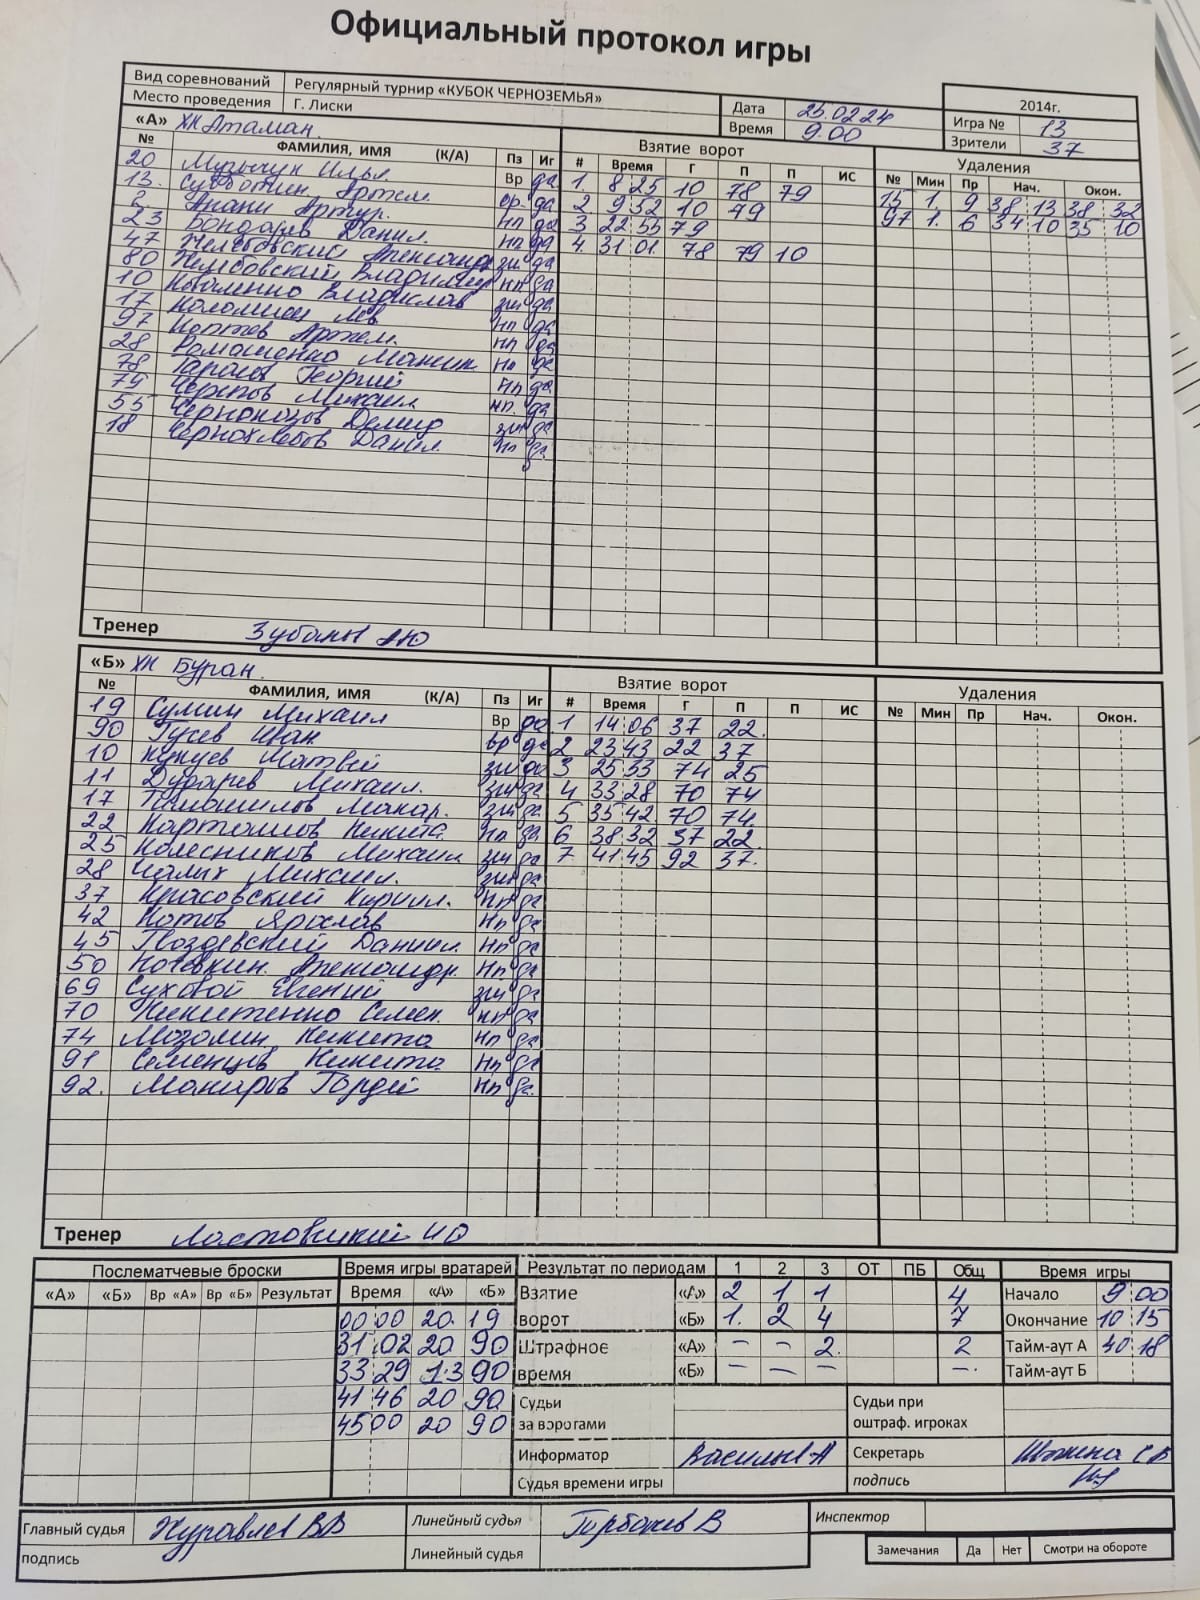 Официальный протокол игры
Вид соревнований Регулярный турнир «КУБОК ЧЕРНОЗЕМЬЯ» Дата 25.02.24 2014г.
Место проведения Г. Лиски Время 9.00 Игра № 13
Зрители 37
«А» ХК Атаман. Взятие ворот Удаления
№ ФАМИЛИЯ, ИМЯ (К/А) Пз Иг # Время Г П П ИС № Мин Пр Нач. Окон.
20 Музычук Илья Вр да 1. 8 25 10 78 79 15 1. 9 38 13 38 32
13. Субботин Артем. вр. да 2. 9 52 10 79 97 1. 6 34 10 35 10
2. Анани Артур. нп да 3 22 55 79
23 Бондарев Данил. нп да 4. 31 01. 78 79 10
47 Александр зщ да
80 Владимир нп да
10 Коваленко Владислав зщ да
17 Коломиец Лев нп да
97 Коптев Артем. нп да
28 Ромащенко Максим нп да
78 Тарасов Георгий нп да
79 Черепов Михаил нп. да
55 Чернокозов Демид зщ да
18 Чернохлебов Данил. нп да
Тренер
«Б» ХК Буран. Взятие ворот Удаления
№ ФАМИЛИЯ, ИМЯ (К/А) Пз Иг # Время Г П П ИС № Мин Пр Нач. Окон.
19 Сумин Михаил Вр да 1 14 06 37 22.
90 Гусев Иван вр да 2 23 43 22 37
10 Матвей зщ да 3 25 33 74 25
11 Дударев Михаил. зщ да 4 33 28 70 74
17 Макар. зщ да 5 35 42 70 74.
22 Карташов Никита нп да 6 38 32 37 22.
25 Колесников Михаил зщ да 7 41 45 92 37.
28 Михаил. зщ да
37 Красовский Кирилл. нп да
42 Котов Ярослав нп да
45 Гвоздевский Даниил. нп да
50 Александр. нп да
69 Суховой Евгений зщ да
70 Никитенко Семен. нп да
74 Мозолин Никита нп да
91 Семенцев Никита нп да
92. Макаров Гордей нп да
Тренер
Послематчевые броски Время игры вратарей Результат по периодам 1 2 3 ОТ ПБ Общ Время игры
«А» «Б» Вр «А» Вр «Б» Результат Время «А» «Б» Взятие «А» 2 1 1 4 Начало 9 00
00 00 20. 19 ворот «Б» 1. 2 4 7 Окончание 10 15
31 02 20 90 Штрафное «А» – – 2. 2 Тайм-аут А 40 18
33 29 13 90 время «Б» – – – –. Тайм-аут Б
41 46 20 90 Судьи Судьи при
45 00 20 90 за воротами оштраф. игроках
Информатор Секретарь
Судья времени игры подпись
Главный судья Журавлев ВВ Линейный судья Горбачев В Инспектор
подпись Линейный судья Замечания Да Нет Смотри на обороте